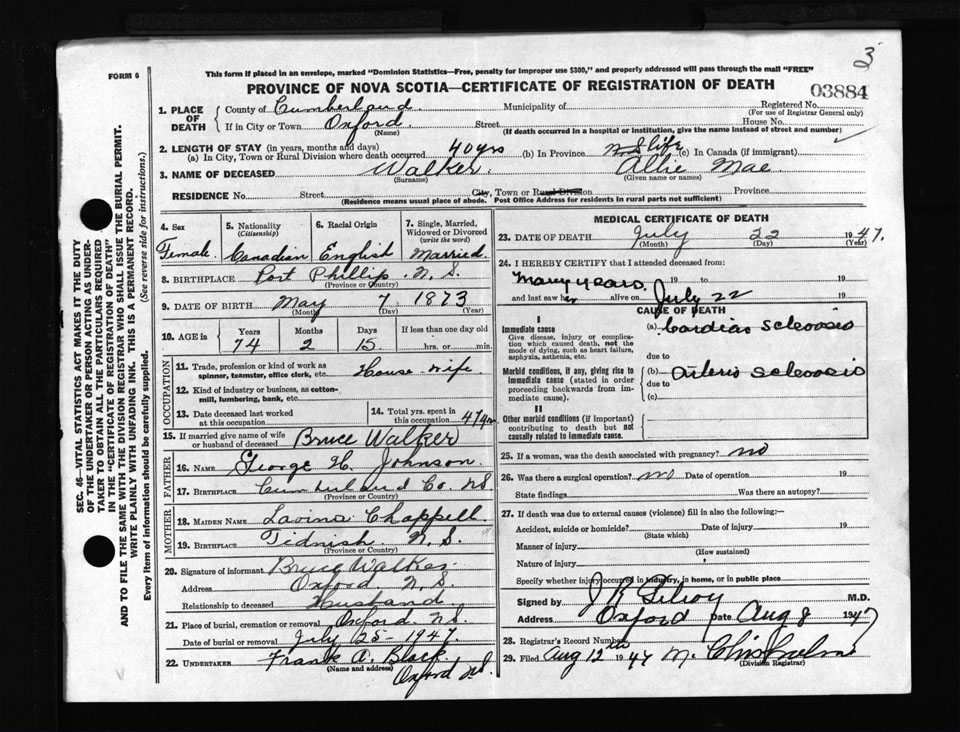 3
FORM 6
This form if placed in an envelope, marked "Dominion Statistics—Free, penalty for improper use $300," and properly addressed will pass through the mail "FREE"
PROVINCE OF NOVA SCOTIA—CERTIFICATE OF REGISTRATION OF DEATH
03884
1. PLACE OF DEATH
County of Cumberland Municipality of Registered No.
(For use of Registrar General only)
If in City or Town Oxford Street House No.
(Name) (If death occurred in a hospital or institution, give the name instead of street and number)
2. LENGTH OF STAY (in years, months and days)
(a) In City, Town or Rural Division where death occurred 40 yrs (b) In Province N.S life (c) In Canada (if immigrant)
3. NAME OF DECEASED Walker Allie Mae
(Surname) (Given name or names)
RESIDENCE No. Street City, Town or Rural Division Province
(Residence means usual place of abode. Post Office Address for residents in rural parts not sufficient)
4. Sex
Female
5. Nationality
(Citizenship)
Canadian
6. Racial Origin
English
7. Single, Married, Widowed or Divorced
(write the word)
Married
8. BIRTHPLACE Port Phillip. N. S.
(Province or Country)
9. DATE OF BIRTH May 7 1873
(Month) (Day) (Year)
10. AGE in
Years Months Days If less than one day old
74 2 15 hrs. or min.
OCCUPATION
11. Trade, profession or kind of work as spinner, teamster, office clerk, etc. House-wife
12. Kind of industry or business, as cotton-mill, lumbering, bank, etc.
13. Date deceased last worked at this occupation
14. Total yrs. spent in this occupation
15. If married give name of wife or husband of deceased Bruce Walker
FATHER
16. NAME George H. Johnson
17. BIRTHPLACE Cumberland Co. NS
(Province or Country)
MOTHER
18. MAIDEN NAME Lavina Chappell
19. BIRTHPLACE Tidnish. N. S.
(Province or Country)
20. Signature of informant Bruce Walker
Address Oxford N. S.
Relationship to deceased Husband
21. Place of burial, cremation or removal Oxford N.S.
Date of burial or removal July 25-1947.
22. UNDERTAKER Frank A. Black
(Name and address) Oxford N.S.
MEDICAL CERTIFICATE OF DEATH
23. DATE OF DEATH July 22 1947.
(Month) (Day) (Year)
24. I HEREBY CERTIFY that I attended deceased from:
Many years 19 to 19
and last saw her alive on July 22 19
CAUSE OF DEATH
I
Immediate cause (a) Cardiac Sclerosis
Give disease, injury or complication which caused death, not the mode of dying, such as heart failure, asphyxia, asthenia, etc.
due to
Morbid conditions, if any, giving rise to immediate cause (stated in order proceeding backwards from immediate cause).
(b) Arterio Sclerosis
due to
(c)
II
Other morbid conditions (if important) contributing to death but not causally related to immediate cause.
25. If a woman, was the death associated with pregnancy? no
26. Was there a surgical operation? no Date of operation 19
State findings Was there an autopsy?
27. If death was due to external causes (violence) fill in also the following:—
Accident, suicide or homicide? Date of injury 19
(State which)
Manner of injury
(How sustained)
Nature of injury
Specify whether injury occurred in industry, in home, or in public place
Signed by J R Gilroy M.D.
Address Oxford Date Aug 8 1947
28. Registrar's Record Number
29. Filed Aug 12th 1947 M. Chisholm
(Division Registrar)
SEC. 46—VITAL STATISTICS ACT MAKES IT THE DUTY
OF THE UNDERTAKER OR PERSON ACTING AS UNDER-
TAKER TO OBTAIN ALL THE PARTICULARS REQUIRED
IN THE "CERTIFICATE OF REGISTRATION OF DEATH"
AND TO FILE THE SAME WITH THE DIVISION REGISTRAR WHO SHALL ISSUE THE BURIAL PERMIT.
WRITE PLAINLY WITH UNFADING INK. THIS IS A PERMANENT RECORD.
Every item of information should be carefully supplied. (See reverse side for instructions.)